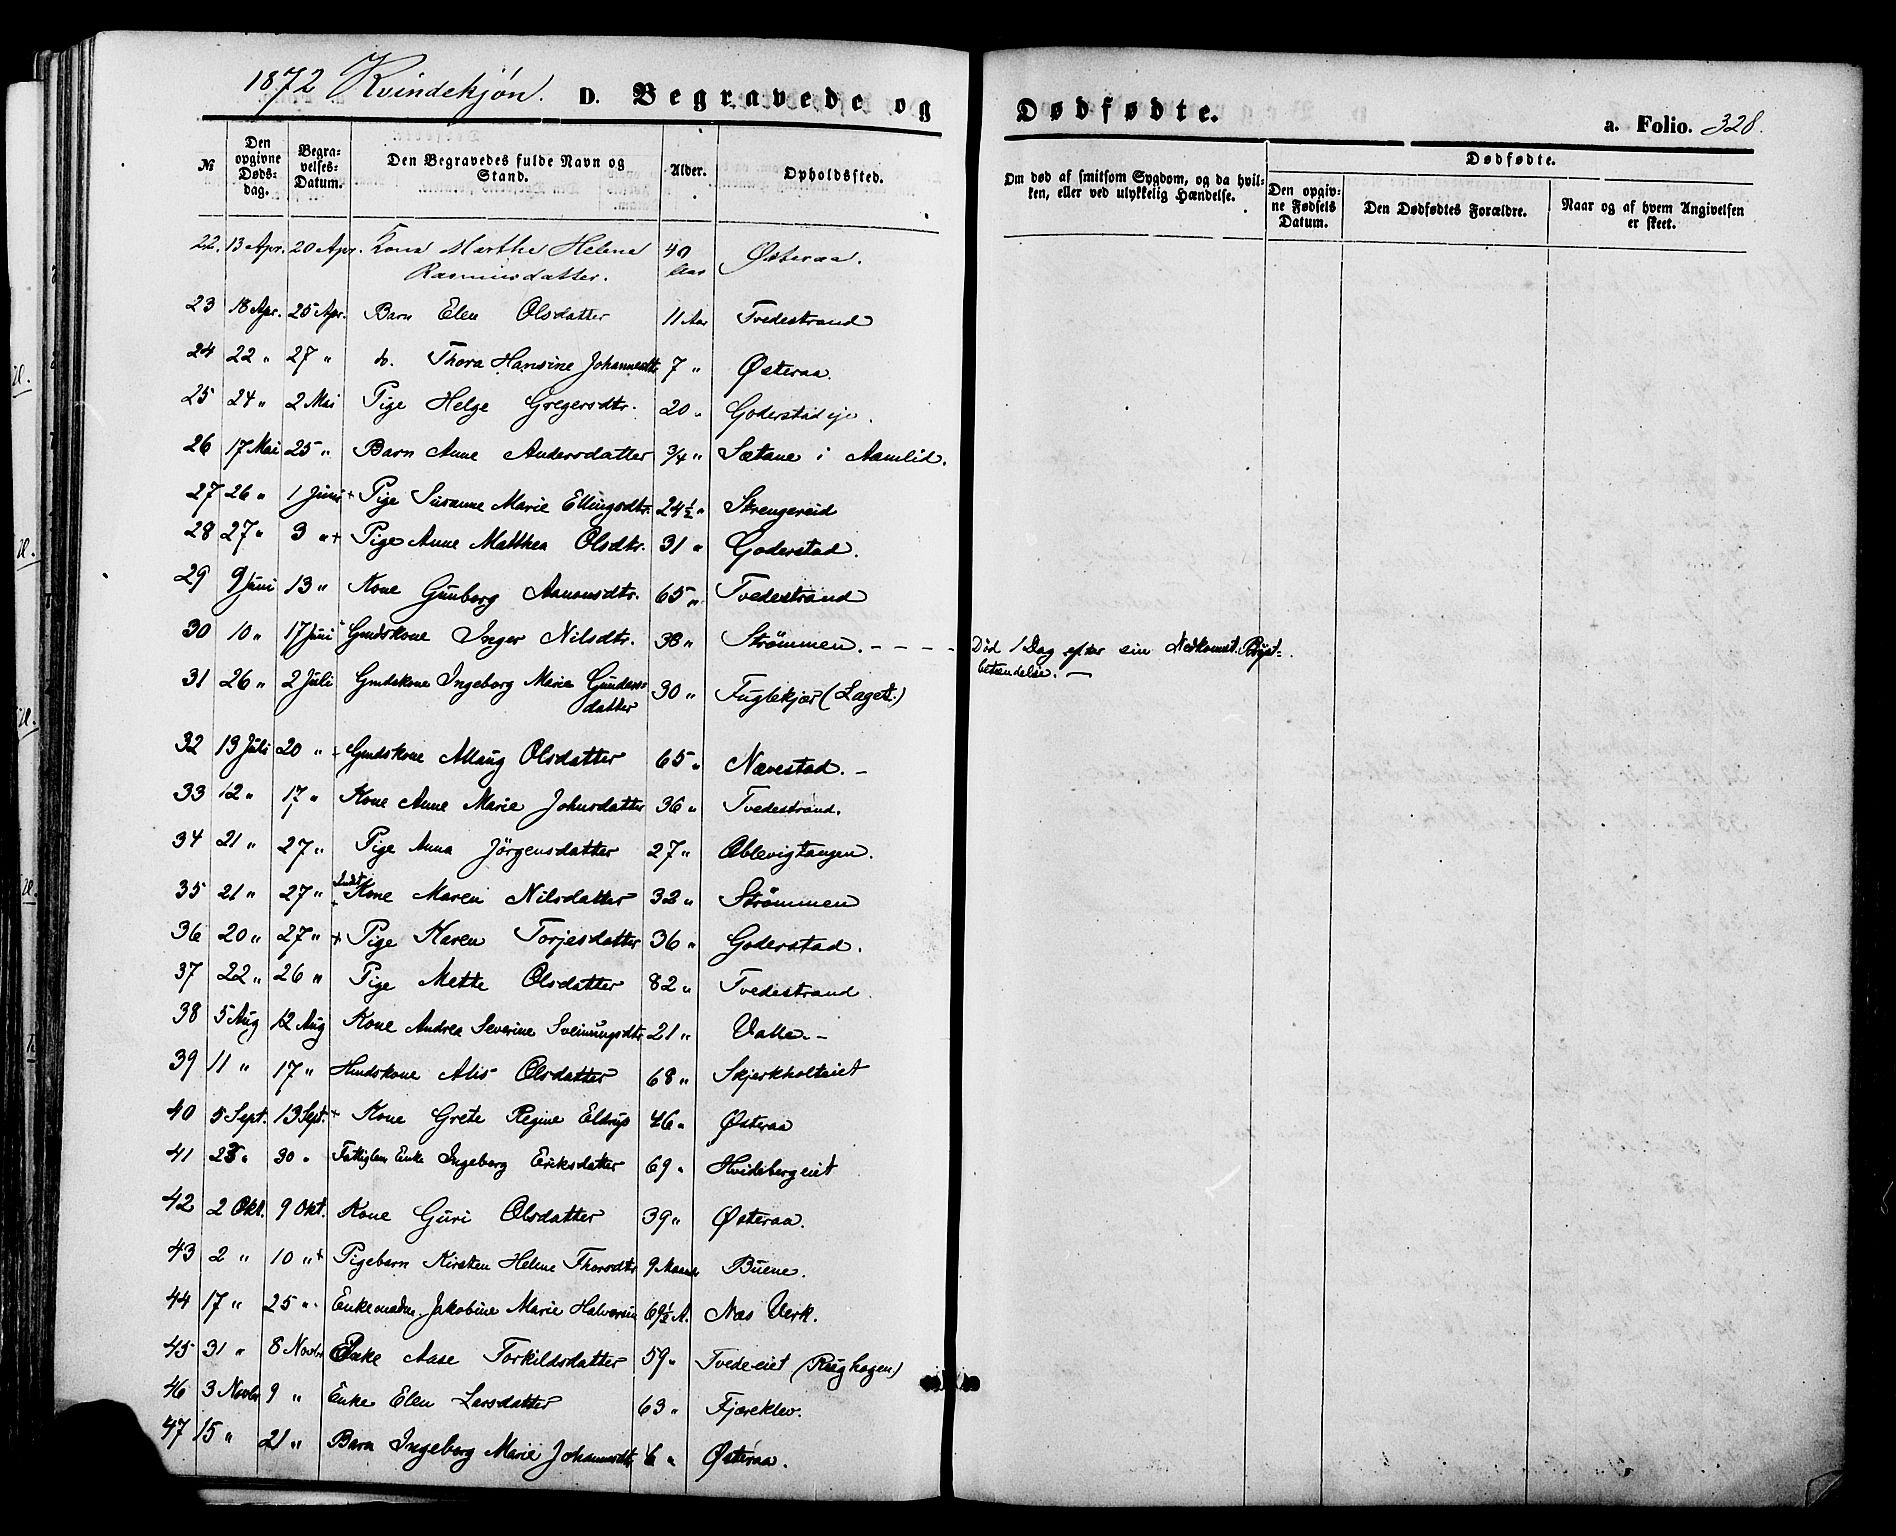 1872 Kvindekjøn. D. Begravede og Dødfødte. a. Folio. 328.
№ | Den opgivne Døds-dag. | Begra-velses-Datum. | Den Begravedes fulde Navn og Stand. | Alder. | Opholdssted. | Om død af smitsom Sygdom, og da hvil-ken, eller ved ulykkelig Hændelse. | Dødfødte. | Den opgiv-ne Fødsels Datum. | Den Dødfødtes Forældre. | Naar og af hvem Angivelsen er skeet.
22. 13 Apr. 20 Apr. Kone Marthe Helene 40 Aar Østeraa.
Rasmusdatter.
23 18 Apr. 25 Apr. Barn Elen Olsdatter 11 Aar Tvedestrand
24 22 " 27 " do. Thora Hansine Johannesdtr. 7 " Østeraa.
25 24 " 2 Mai Pige Helge Gregersdtr. 20 " Goderstadeje.
26 17 Mai 25 " Barn Anne Andersdatter 3/4 " Sætane i Aamlid.
27 26 " 1 Juni + Pige Susanne Marie Ellingsdtr. 24½ " Strengereid
28 27 " 3 " + Pige Anne Matthea Olsdtr. 31 " Goderstad.
29 9 Juni 13 " Kone Gunborg Aanonsdtr. 65 " Tvedestrand
30 10 " 17 Juni Gmdskone Inger Nilsdtr. 38 " Strømmen. - - - - Død 1 Dag efter sin Nedkomst. Bryst-
betændelse. —
31 26 " 2 Juli Gmdskone Ingeborg Marie Gunders- 30 " Fuglekjær (Laget.)
datter
32 13 Juli 20 " - Gmdskone Allaug Olsdatter 65 " Nævestad. -
33 12 " 17 " Kone Anne Marie Johnsdatter 36 " Tvedestrand.
34 21 " 27 " Pige Anna Jörgensdatter 27 " Oblevigtangen.
35 21 " 27 " + Kone Maren Nilsdatter 32 " Strømmen
36 20 " 27 " + Pige Karen Torjesdatter 36 " Goderstad.
37 22 " 26 " Pige Mette Olsdatter 82 " Tvedestrand
38 5 Aug 12 Aug Kone Andrea Severine Sveinungsdtr 21 " Valle. -
39 11 " 17 " Huuskone Alis Olsdatter 68 " Skjerkholteiet
40 5 Sept. 13 Sept. + Kone Grete Regine Eldrup 46 " Østeraa
41 23 " 30 " Fattiglem Enke Ingeborg Eriksdatter 69 " Hvidebergeiet
42 2 Okt. 9 Okt. Kone Guri Olsdatter 39 " Østeraa.
43 2 " 10 " + Pigebarn Kirsten Helene Thorsdtr 9 Maaned Buene.
44 17 " 25 " Enkemadm. Jakobine Marie Halvorsen 69½ A. Næs Verk.
45 31 " 8 Novbr Enke Aase Torkildsdatter 59 " Tvedeeiet (Rughagen)
46 3 Novbr 9 " Enke Elen Larsdatter 63 " Fjæreklev.
47 15 " 21 " Barn Ingeborg Marie Johannesdtr. 6 " Østeraa.